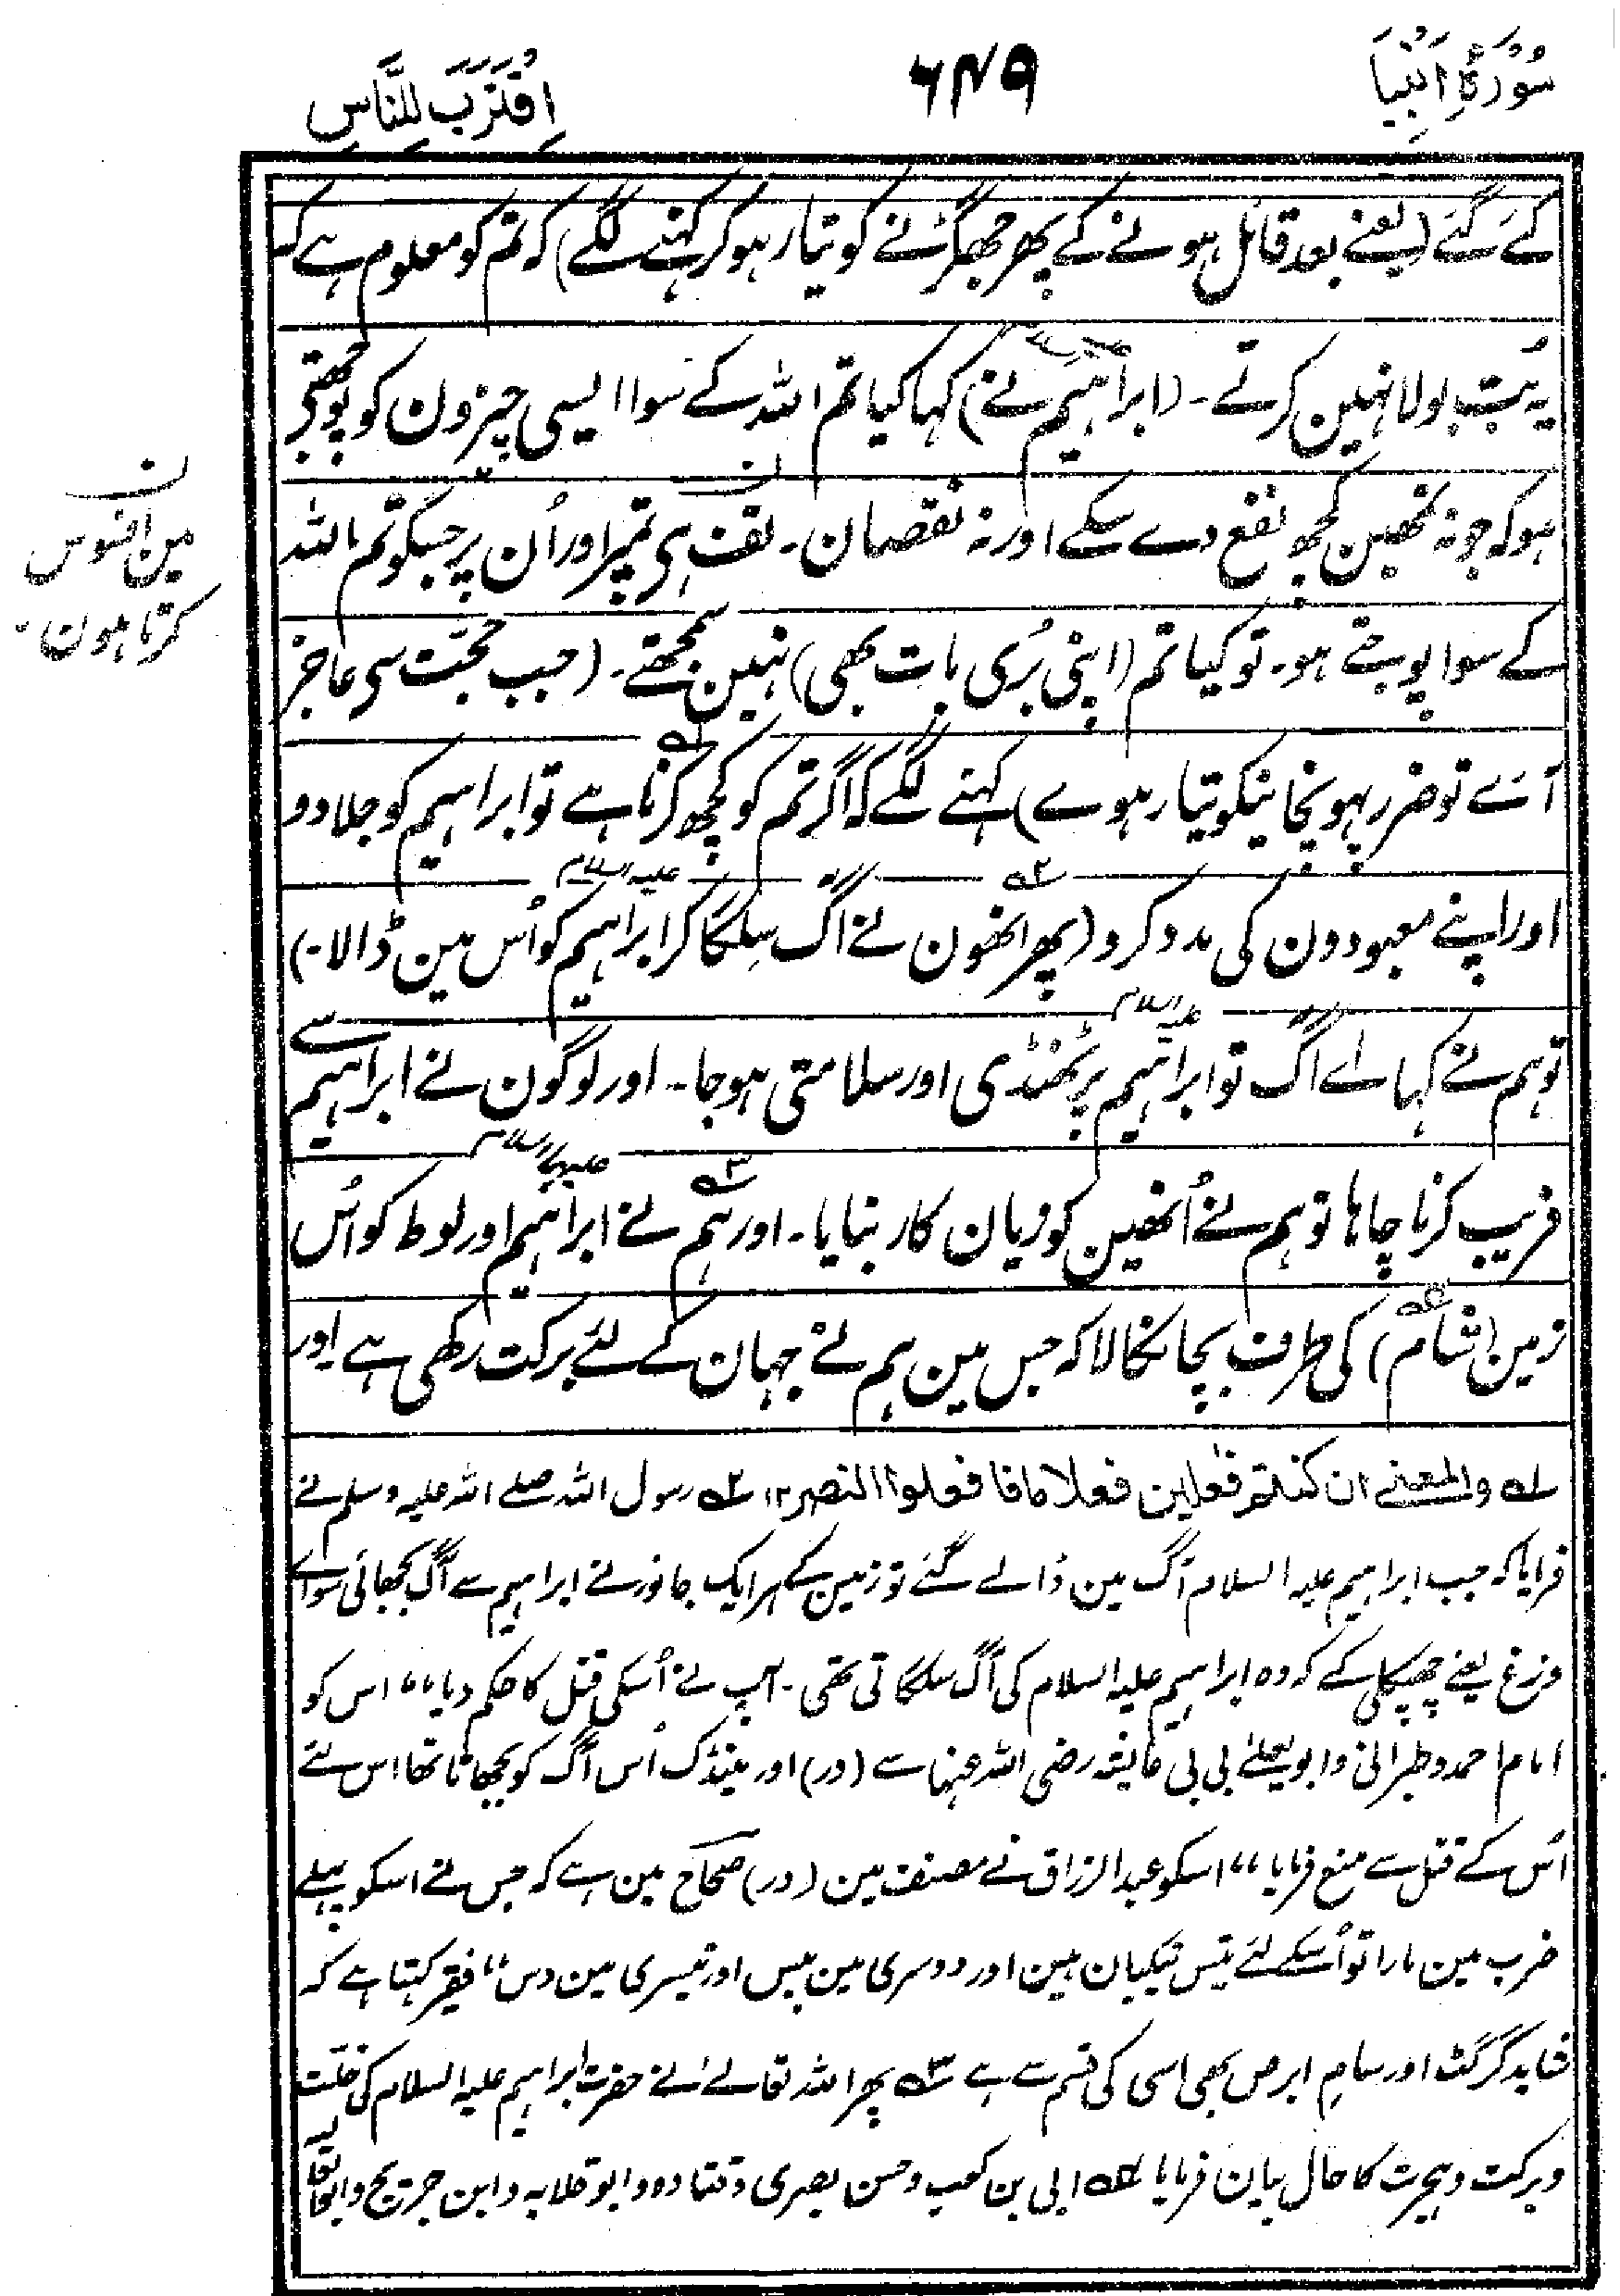 سُوْرَۃُ اَنْبِیَا
۶۴۹
اِقْتَرَبَ لِلنَّاسِ
کئے گئے (یعنے بعد قائل ہونے کے پھر جھگڑنے کو تیار ہو کر کہنے لگے) کہ تم کو معلوم ہے کہ
یہ بُت بولا نہین کرتے۔ (ابراہیم نے) کہا کیا تم اللہ کے سوا ایسی چیزون کو پوجتے
ہو کہ جو نہ تمھین کچھ نفع دے سکے اور نہ نقصان۔ تف ہی تمپر اور اُن پر جنکو تم اللہ
ف
مین افسوس
کرتا ہون۔
کے سوا پوجتے ہو۔ تو کیا تم (اپنی بُری بات بھی) نہین سمجھتے۔ (جب حجّت سی عاجز
آئے تو ضرر پہونچانیکو تیار ہوے) کہنے لگے کہ اگر تم کو کچھ کرنا ہے تو ابراہیم کو جلا دو
اور اپنے معبودون کی مدد کرو (پھر انھون نے آگ سلگا کر ابراہیم علیہ السلام کو اُس مین ڈالا۔)
تو ہم نے کہا اے آگ تو ابراہیم علیہ السلام پر ٹھنڈی اور سلامتی ہو جا۔ اور لوگون نے ابراہیم سے
فریب کرنا چاہا تو ہم نے اُنھین کو زیان کار بنایا۔ اور ہم نے ابراہیم اور لوط علیہما السلام کو اُس
زمین (شام) کی طرف بچا نکالا کہ جس مین ہم نے جہان کے لئے برکت رکھی ہے اور
۱ والمعنے ان کنتم فٰعلین فعلا ما فافعلوا النصر ۱۲ ۲ رسول اللہ صلے اللہ علیہ وسلم نے
فرمایا کہ جب ابراہیم علیہ السلام آگ مین ڈالے گئے تو زمین کے ہر ایک جانور نے ابراہیم سے آگ بجھائی سواے
وزغ یعنے چھپکلی کے کہ وہ ابراہیم علیہ السلام کی آگ سلگاتی تھی۔ آپ نے اُسکی قتل کا حکم دیا،، اس کو
امام احمد و طبرانی و ابو یعلےٰ بی بی عایشہ رضی اللہ عنہا سے (در) اور مینڈک اُس آگ کو بجھاتا تھا اس لئے
اُس کے قتل سے منع فرمایا،، اسکو عبدالرزاق نے مصنف مین (در) صحاح مین ہے کہ جس نے اسکو پہلے
ضرب مین مارا تو اُسکے لئے تیس نیکیان ہین اور دوسری مین بیس اور تیسری مین دس،، فقیر کہتا ہے کہ
شاید گرگٹ اور سامِ ابرص بھی اسی کی قسم سے ہے ۳ پھر اللہ تعالےٰ نے حضرت ابراہیم علیہ السلام کی خلّت
و برکت و ہجرت کا حال بیان فرمایا ۴ ابی بن کعب و حسن بصری و قتادہ و ابو قلابہ و ابن جریج و ابو العالیہ